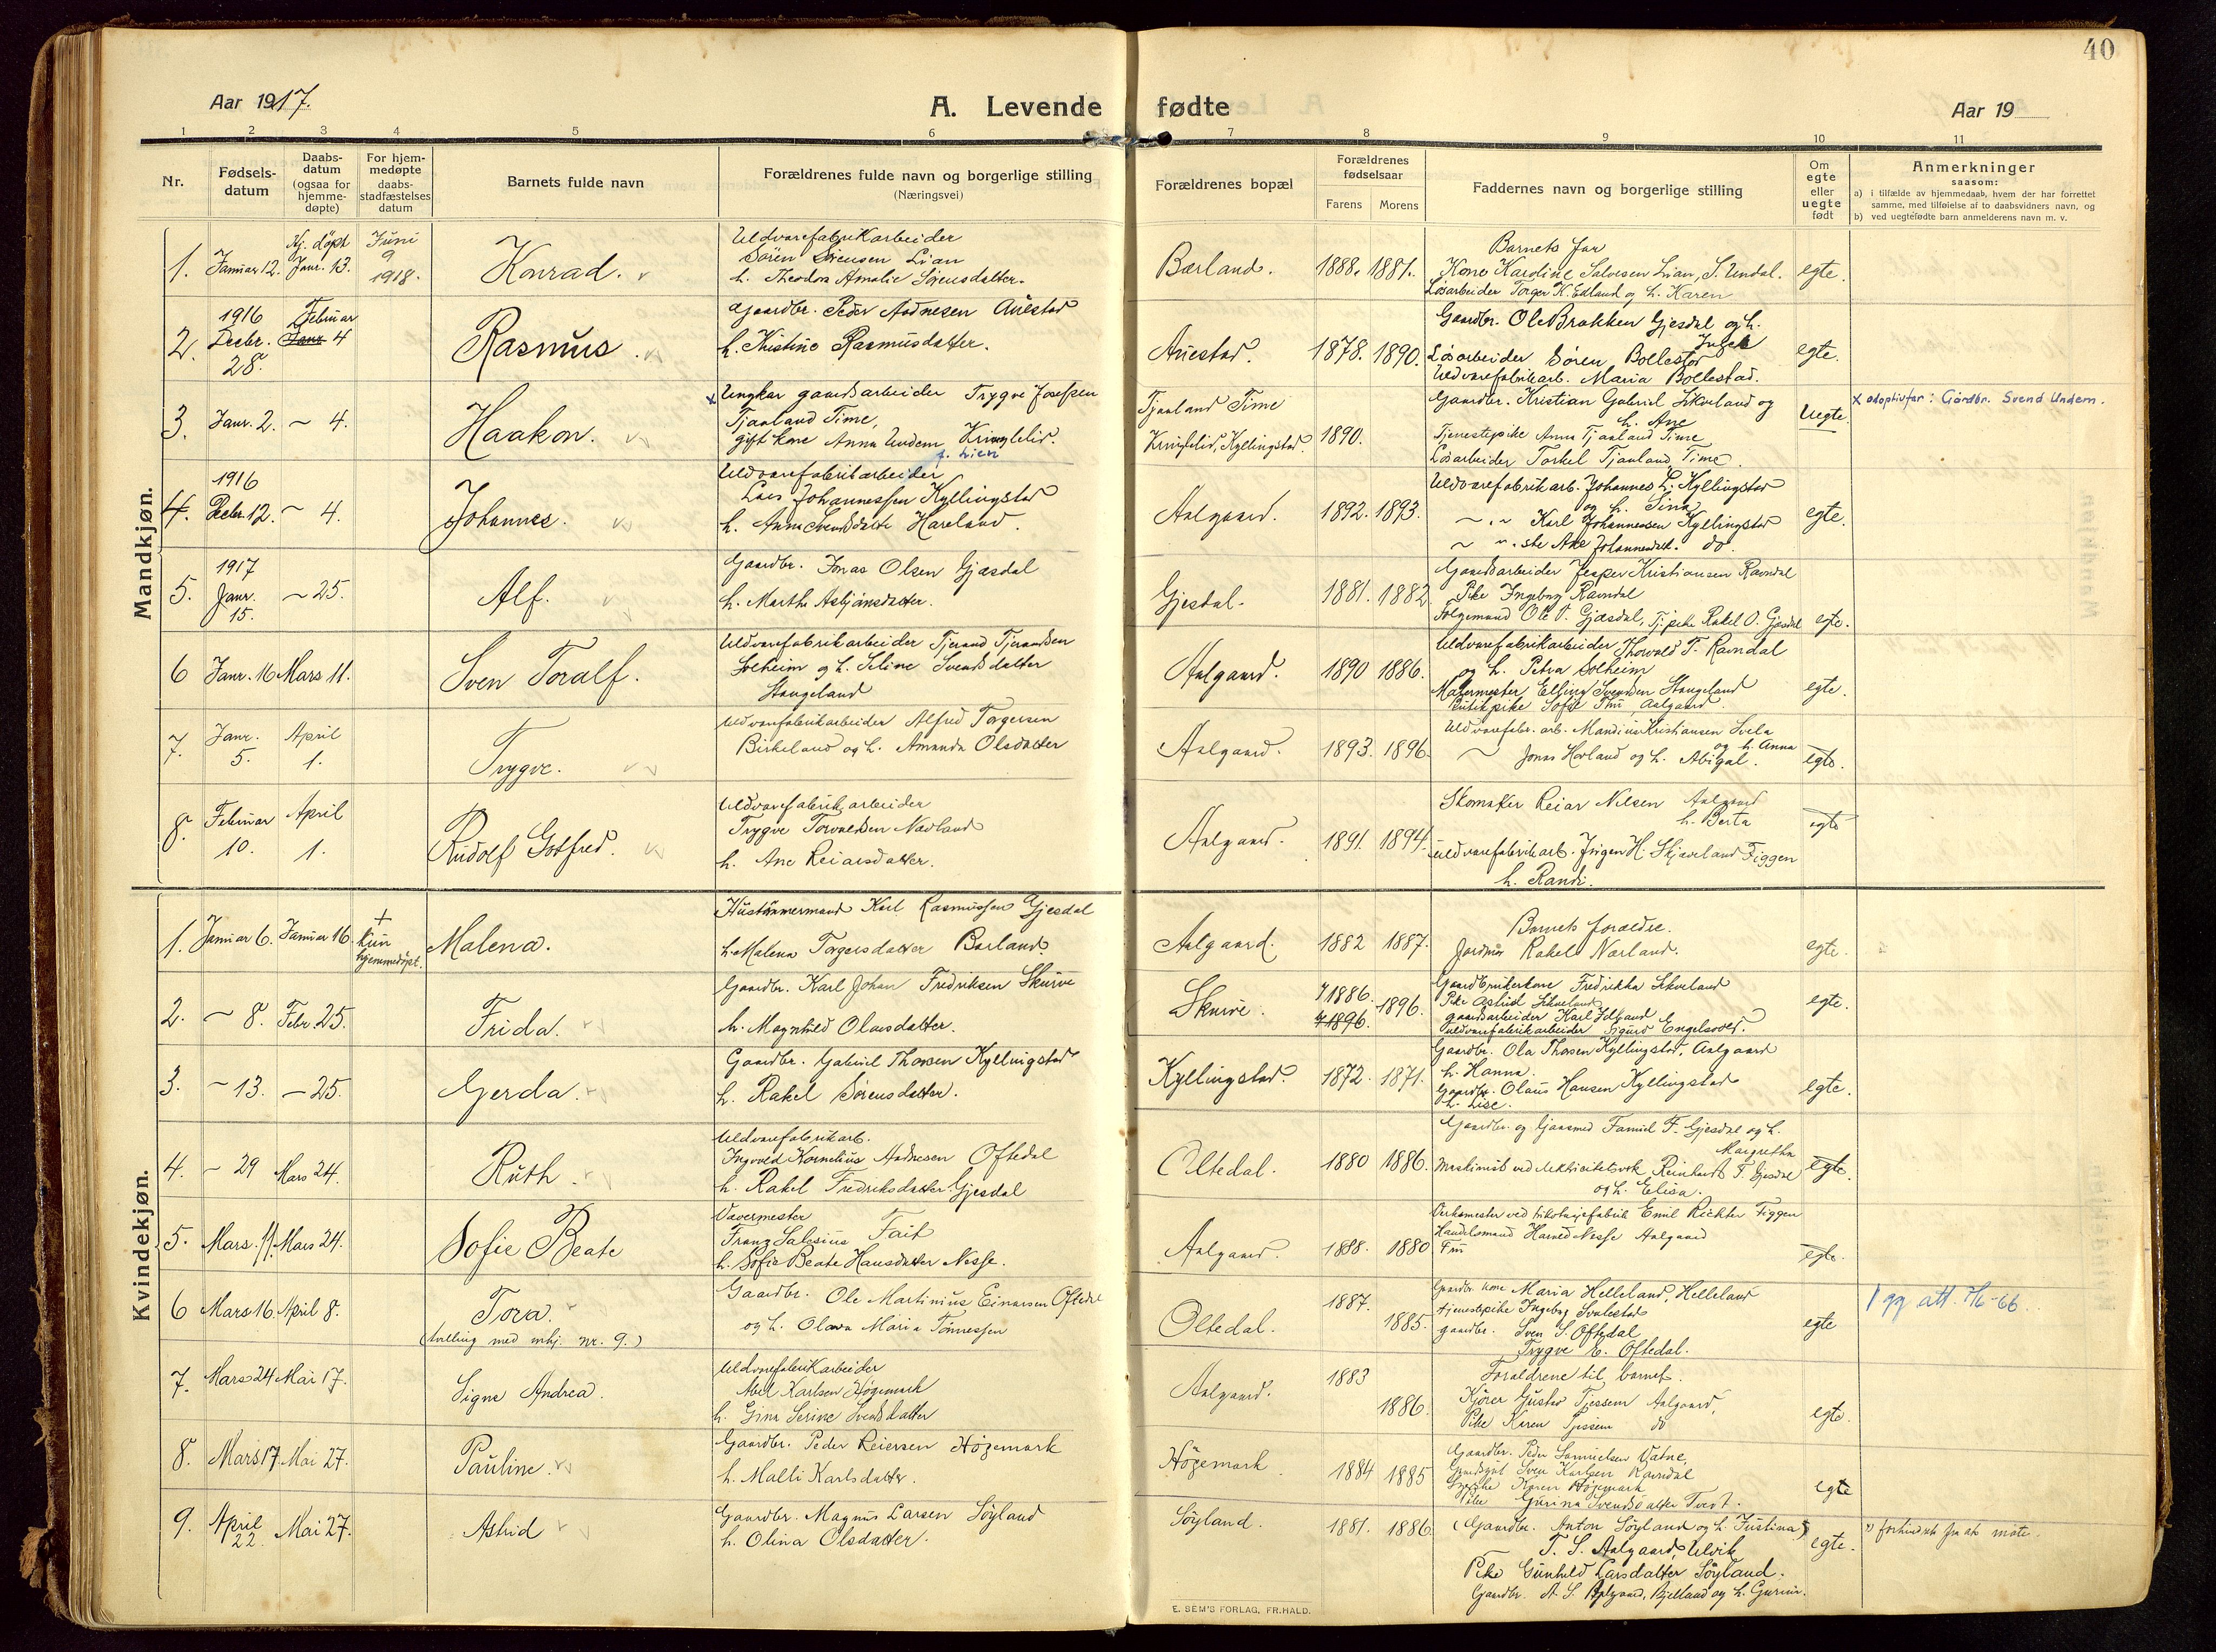 40
Aar 1917.
A. Levende fødte
Aar 19
1 2 3 4 5 6 7 8 9 10 11
Nr.
Fødsels-
datum
Daabs-
datum
(ogsaa for
hjemme-
døpte)
For hjem-
medøpte
daabs-
stadfæstelses
datum
Barnets fulde navn
Forældrenes fulde navn og borgerlige stilling
(Næringsvei)
Forældrenes bopæl
Forældrenes
fødselsaar
Farens Morens
Faddernes navn og borgerlige stilling
Om
egte
eller
uegte
født
Anmerkninger
saasom:
a) i tilfælde av hjemmedaab, hvem der har forrettet
samme, med tilføielse af to daabsvidners navn, og
b) ved uegtefødte barn anmelderens navn m. v.
Mandkjøn.
1. Januar 12. Hj. døpt Janr. 13. Juni 9 1918. Konrad.
Uldvarefabrikarbeider
Sören Sörensen Lian
h. Theodora Amalie Sörensdatter.
Bærland. 1888. 1881.
Barnets far
Kone Karoline Salvesen Lian, S. Undal.
Løsarbeider Torger K. Edland og h. Karen
egte.
2. 1916 Decbr. 28. Februar 4 Rasmus.
Gaardbr. Peder Aadnesen Auestad
h. Kristine Rasmusdatter.
Auestad. 1878. 1890.
Gaardbr. Ole Brakken Gjesdal og h.
Løsarbeider Sören Bollestad
Uldvarefabrikarb. Maria Bollestad.
egte.
3. Janr. 2. ~ 4. Haakon.
x Ungkar gaardsarbeider Trygve Josefsen
Tjaaland Time,
gift kone Anna Undem, Kringlelid.
f. Lien
Tjaaland Time
Kringlelid, Kyllingstad. 1890.
Gaardbr. Kristian Gabriel Sikveland og
h. Ane
Tjenestepike Anna Tjaaland Time
Løsarbeider Torkel Tjaaland Time.
Uegte.
x adoptivfar: Gårdbr. Svend Undem.
4. 1916 Decbr. 12. ~ 4. Johannes.
Uldvarefabrikarbeider
Lars Johannessen Kyllingstad
h. Anna Svendsdatter Haveland.
Aalgaard. 1892. 1893.
Uldvarefabrikarb. Johannes L. Kyllingstad
og h. Sina
~ . ~ Karl Johannessen Kyllingstad
~ . ~ ske Ane Johannesdtt. do.
egte.
5. 1917 Janr. 15. ~ 25. Alf.
Gaardbr. Jonas Olsen Gjesdal
h. Marthe Asbjörnsdatter.
Gjesdal. 1881. 1882
Gaardsarbeider Jesper Kristiansen Ravndal
Pike Ingeborg Ravndal
Folgemand Ole V. Gjesdal, Tj. pike Rakel O. Gjesdal
egte.
6 Janr. 16 Mars 11. Sven Toralf.
Uldvarefabrikarbeider Tjerand Tjerandsen
Solheim og h. Seline Svendsdatter
Stangeland
Aalgaard. 1890 1886.
Uldvarefabrikarbeider Thorvald T. Ravndal
og h. Petra Solheim
Malermester Elling Svendsen Stangeland
Butikpike Sofie Thu, Aalgaard.
egte.
7. Janr. 5. April 1. Trygve.
Uldvarefabrikarbeider Alfred Torgersen
Birkeland og h. Amanda Olsdatter
Aalgaard. 1893. 1896.
Uldvarefabr. arb. Mandius Kristiansen Svela
og h. Anna
~ Jonas Hovland og h. Abigal.
egte.
8. Februar 10. April 1. Rudolf Gotfred.
Uldvarefabrik arbeider
Trygve Torvaldsen Nævland
h. Ane Reiarsdatter.
Aalgaard. 1891. 1894.
Skomaker Reiar Nilsen Aalgaard
h. Berta
Uldvarefabrikarb. Jörgen H. Skjæveland Figgen
h. Randi.
egte
Kvindekjøn.
1. Januar 6. Januar 16. + kun hjemmedøpt. Malena.
Hustömmermand Karl Rasmussen Gjesdal
h. Malena Torgersdatter Bærland.
Aalgaard. 1882 1887.
Barnets foræ­ldre.
Jordmor Rakel Nærland.
egte.
2. ~ 8. Febr. 25. Frida.
Gaardbr. Karl Johan Fredriksen Skurve
h. Magnhild Olausdatter.
Skurve. 1886. 1896 1896.
Gaardbrukerkone Fredrikka Sikveland
Pike Astrid Sikveland
gaardsarbeider Karl
uldvarefabrikarbeider Sigurd Engelsvold.
egte.
3. ~ 13. ~ 25. Gerda.
Gaardbr. Gabriel Thorsen Kyllingstad
h. Rakel Sörensdatter.
Kyllingstad. 1872. 1871.
Gaardbr. Ola Thorsen Kyllingstad, Aalgaard
h. Hanna.
Gaardbr. Olaus Hansen Kyllingstad
h. Lise.
egte.
4. ~ 29 Mars 24. Ruth.
Uldvarefabrikarb.
Ingvald Kornelius Andresen Oftedal
h. Rakel Fredriksdatter Gjesdal
Oltedal. 1880 1886.
Gaardbr. og Samuel F. Gjesdal og h.
Margretha
Maskinist ved elektricitetsverk Reinhart F. Gjesdal
og h. Elisa.
egte.
5. Mars. 11. Mars 24. Sofie Beate
Vævermester
Franz Salesius Fait
h. Sofie Beate Hansdatter Nesse.
Aalgaard. 1888. 1880
Verksmester ved trikotagefabrik Emil Richter Figgen
Handelsmand Nesse Aalgaard
egte.
6 Mars 16. April 8. Tora.
(tvilling med mkj. nr. 9.)
Gaardbr. Ole Martinius Einarsen Oftedal
og h. Olava Maria Tönnessen
Oltedal. 1887. 1885.
Gaardbr. kone Maria Helleland, Helleland
tjenestepike Ingeborg Svalestad
gaardbr. Sven S. Oftedal
Trygve E. Oftedal.
egte
1 gg att. 7/6-66.
7. Mars 24 Mai 17. Signe Andrea.
Uldvarefabrikarbeider
Abel Karlsen Høgemark
h. Gina Serine Svendsdatter
Aalgaard. 1883 1886.
Forældrene til barnet.
Kjörer Gustav Tjessem Aalgaard,
Pike Karen Tjessem do
egte.
8. Mars 17. Mai 27. Pauline.
Gaardbr. Peder Reiersen Høgemark
h. Malli Karlsdatter.
Høgemark 1884 1885
Gaardbr. Peder Samuelsen Vatne,
Gaardsgut Sven Karlsen Ravndal
Karen Høgemark
Pike Gurina Svendsdatter Tvedt.
egte
9. April 22 Mai 27. Astrid
Gaardbr. Magnus Larsen Söyland
h. Olina Olsdatter.
Söyland. 1881. 1886
(Gaardbr. Anton Söyland og h. Justina)
T. S. Aalgaard, Ulvik
Pike Gunhild Larsdatter Söyland.
Gaardbr. A. S. Aalgaard, Bjelland og h. Gurine.
egte.
*) forhindret fra at møte.
E. SEM'S FORLAG, FR.HALD.